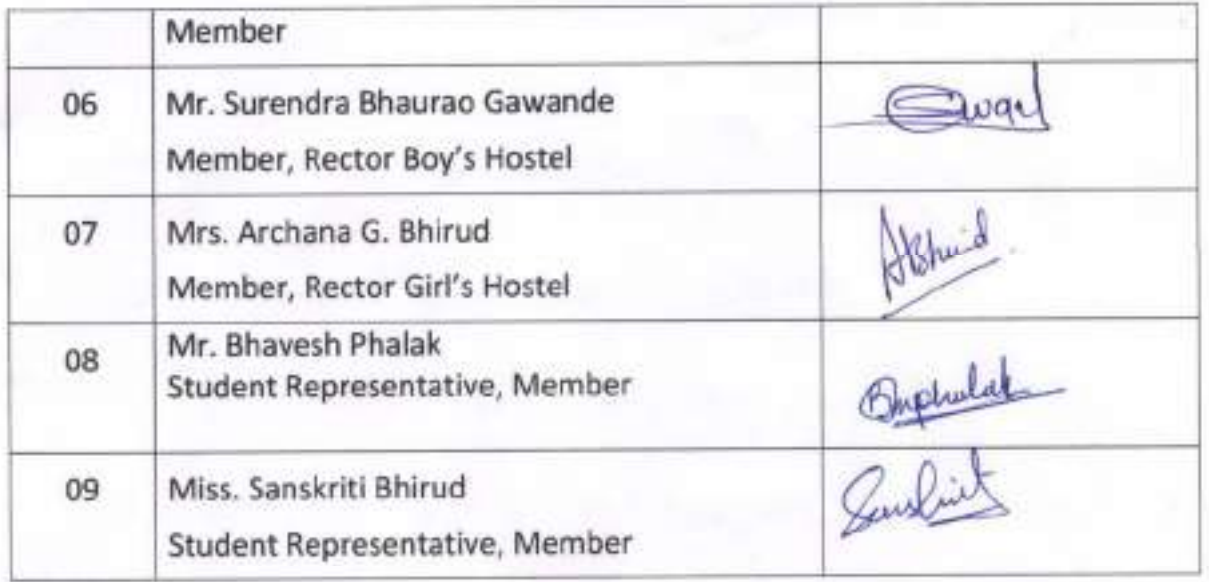 Member
06 Mr. Surendra Bhaurao Gawande
Member, Rector Boy's Hostel
07 Mrs. Archana G. Bhirud
Member, Rector Girl's Hostel
08 Mr. Bhavesh Phalak
Student Representative, Member
Bmphalak
09 Miss. Sanskriti Bhirud
Student Representative, Member